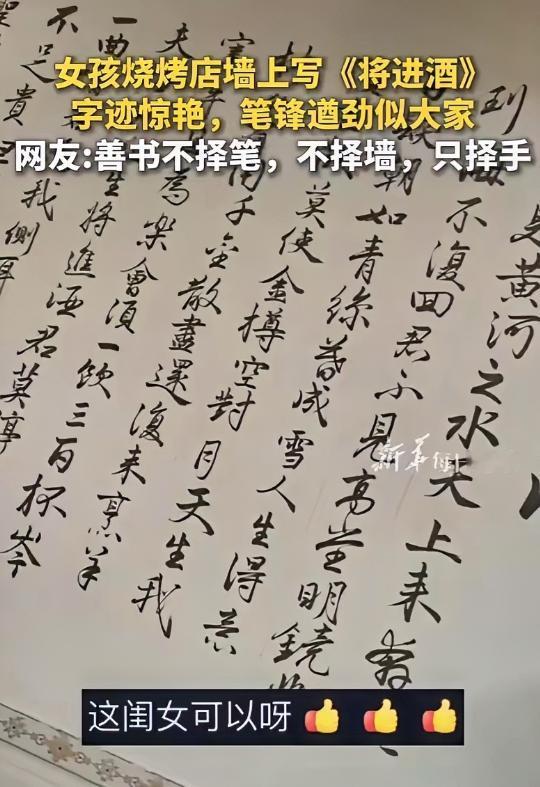 女孩烧烤店墙上写《将进酒》
字迹惊艳，笔锋遒劲似大家
网友:善书不择笔，不择墙，只择手
見黄河之水天上来奔
到海不復回君不見高堂明鏡
朝如青絲暮成雪人生得意
莫使金樽空對月天生我
用千金散盡還復来烹羊
為樂會須一飲三百杯岑
夫
生將進酒君莫停
一曲
我側耳
不
足貴
新华侧
这闺女可以呀👍👍👍